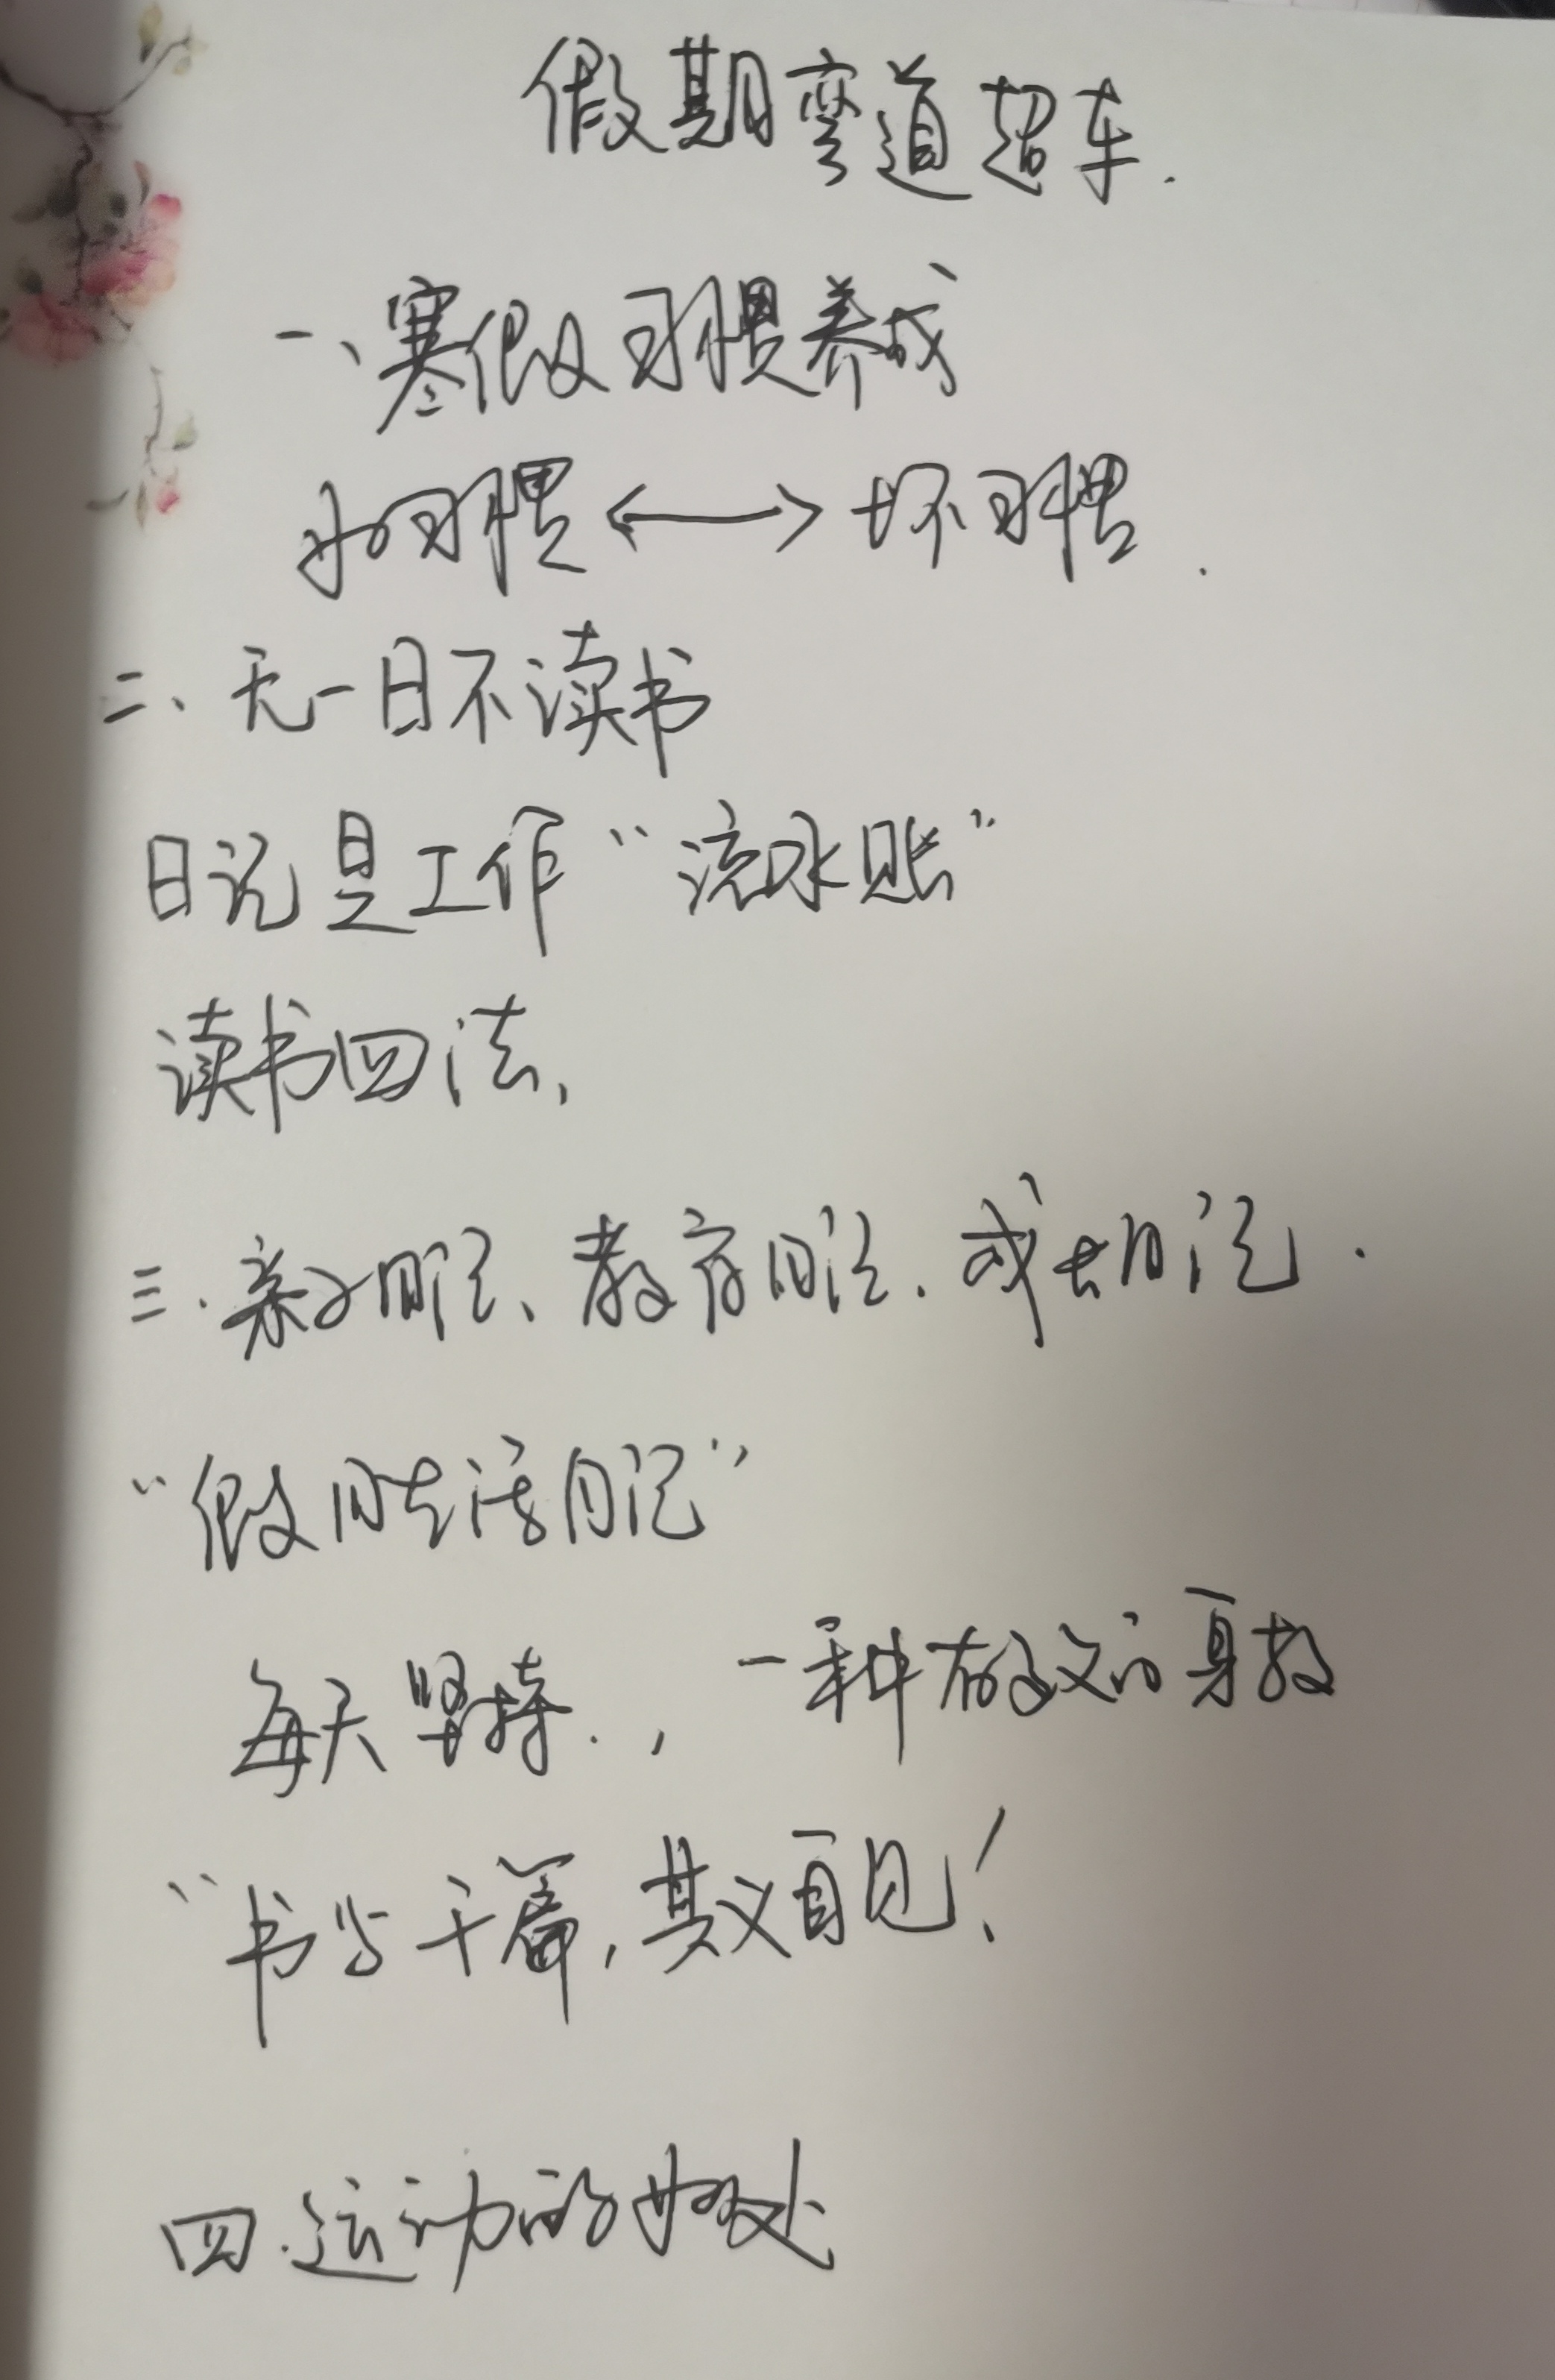 假期弯道超车.
一、寒假习惯养成
好习惯<——>坏习惯.
二、无一日不读书
日记是工作“流水账”
读书四法、
三.亲子日记、教育日记.成长日记.
“假日生活日记”
每天坚持.,一种有效的身教
“书写千篇,其义自见!
四.运动的好处